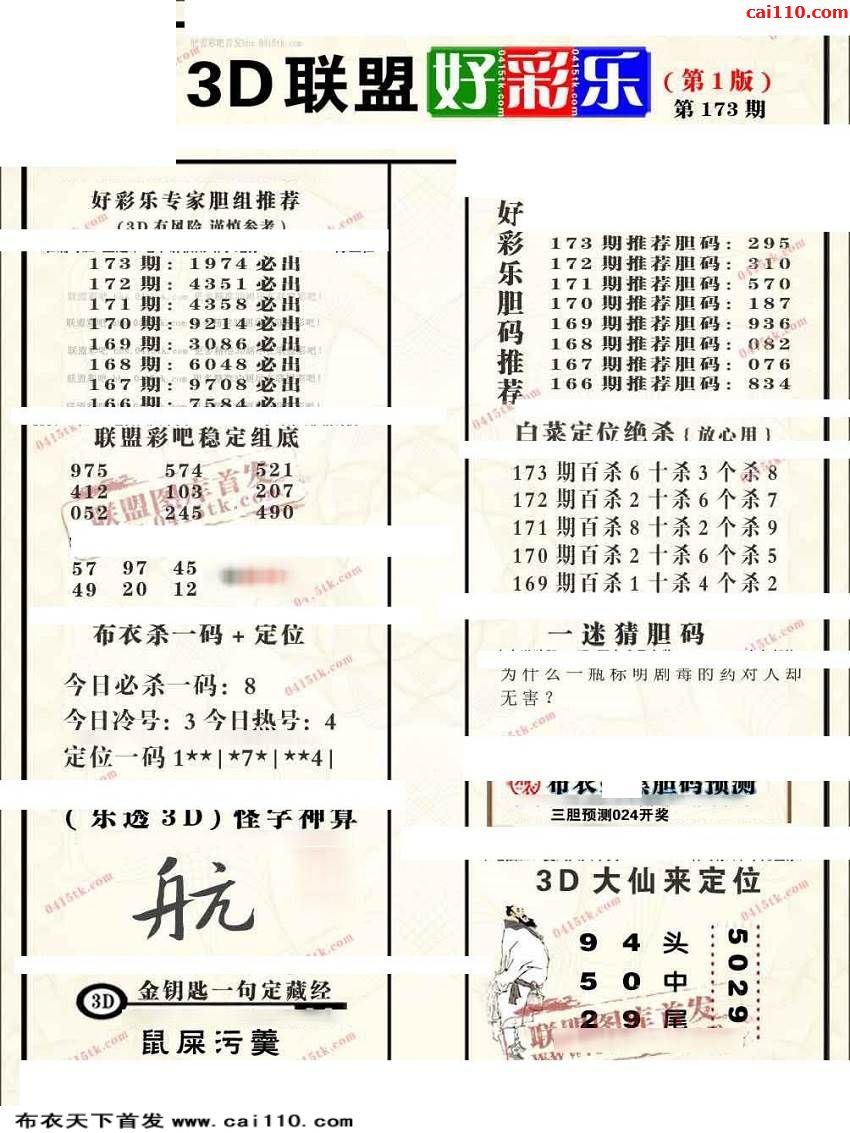 cai110.com
3D联盟好彩乐(第1版)
第173期
好彩乐专家胆组推荐
(3D有风险 谨慎参考)
173期：1974必出
172期：4351必出
171期：4358必出
170期：9214必出
169期：3086必出
168期：6048必出
167期：9708必出
166期：7584必出
联盟彩吧稳定组底
975 574 521
412 103 207
052 245 490
57 97 45
49 20 12
布衣杀一码+定位
今日必杀一码：8
今日冷号：3 今日热号：4
定位一码1**|*7*|**4|
(乐透3D)怪字神算
航
3D 金钥匙一句定藏经
鼠屎污羹
好彩乐胆码推荐
173期推荐胆码：295
172期推荐胆码：310
171期推荐胆码：570
170期推荐胆码：187
169期推荐胆码：936
168期推荐胆码：082
167期推荐胆码：076
166期推荐胆码：834
白菜定位绝杀{放心用}
173期百杀6十杀3个杀8
172期百杀2十杀6个杀7
171期百杀8十杀2个杀9
170期百杀2十杀6个杀5
169期百杀1十杀4个杀2
一迷猜胆码
为什么一瓶标明剧毒的药对人却
无害？
布衣 胆码预测
三胆预测024开奖
3D大仙来定位
9 4 头
5 0 中
2 9 尾
5029
联盟图库首发
0415tk.com
布衣天下首发 www.cai110.com